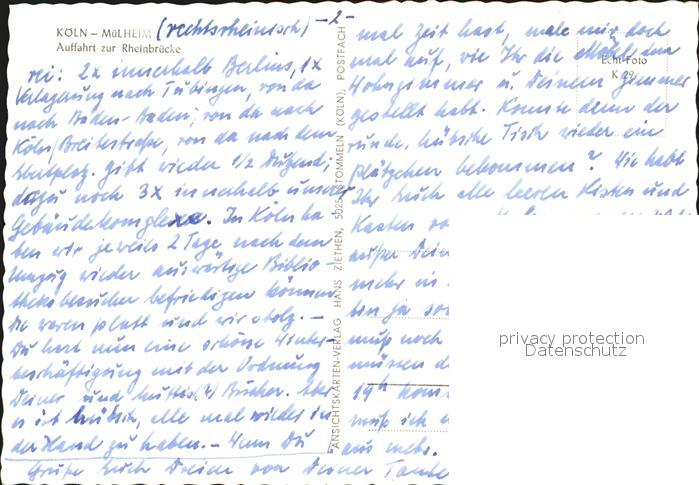 KÖLN – MÜLHEIM (rechtsrheinisch) – 2 –
Auffahrt zur Rheinbrücke
rei: 2x innerhalb Berlins, 1x
Verlagerung nach Tübingen, von da
nach Baden-Baden, von da nach
Köln/Breitestraße, von da nach dem
gibt wieder 1/2 Dutzend;
dazu noch 3x innerhalb unseres
Gebäudekomplexes. In Köln ha-
ben wir jeweils 2 Tage nach dem
Umzug wieder auswärtige Biblio-
theksbesucher befriedigen können.
Die waren platt und wir stolz. –
Du hast nun eine schöne Winter-
beschäftigung mit der Ordnung
Deiner und (?) Bücher. Aber
es ist hübsch, alle mal wieder in
der Hand zu haben. – Wenn Du
mal Zeit hast, male mir doch
mal auf, wie Ihr die Möbel im
Wohnzimmer u. Deinem Zimmer
gestellt habt. Konnte denn der
runde, hübsche Tisch wieder ein
Plätzchen bekommen? Wie habt
Ihr Euch alle leeren Kisten und
Kasten
außer Dein
mehr in
ten ja
muß noch
müssen
19h
muß ich
aus mehr.
Grüße Euch Dreien von Deiner Tante
Echt-Foto
K 29
ANSICHTSKARTEN-VERLAG HANS ZIETHEN, 5025 STOMMELN (KÖLN), POSTFACH
privacy protection
Datenschutz